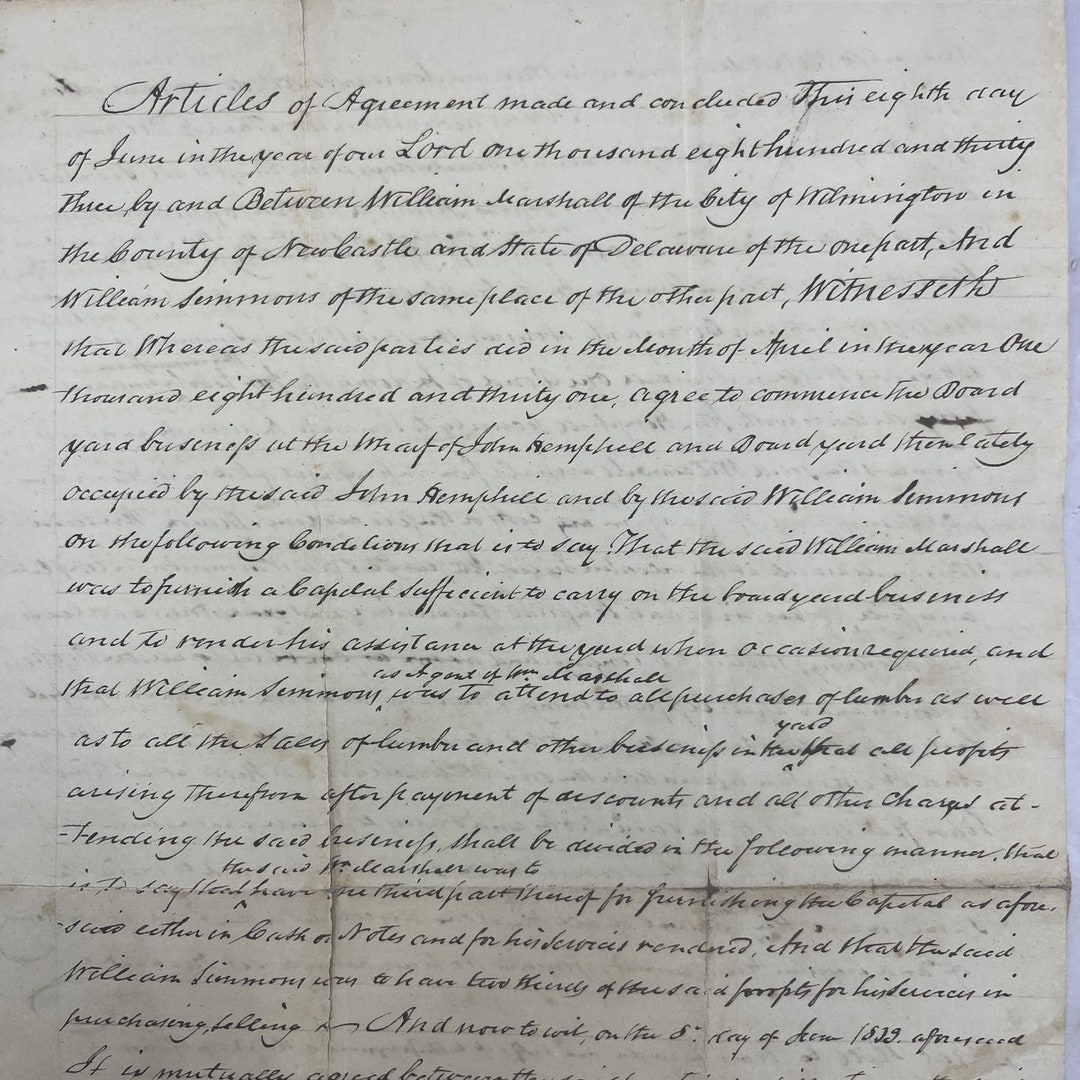 Articles of Agreement made and concluded This eighth day
of June in the year of our Lord one thousand eight hundred and thirty
three by and Between William Marshall of the City of Wilmington in
the County of New Castle and State of Delaware of the one part, And
William Simmons of the same place of the other part, Witnesseth
that Whereas the said parties did in the Month of April in the year One
thousand eight hundred and thirty one, agree to commence the Board
yard business at the Wharf of John Hemphill and Board yard then lately
occupied by the said John Hemphill and by the said William Simmons
on the following Conditions that is to say. That the said William Marshall
was to furnish a Capital sufficient to carry on the board yard business
and to render his assistance at the yard when occasion required, and
as Agent of Wm Marshall
that William Simmons, was to attend to all purchases of lumber as well
yard
as to all the Sales of lumber and other business in the that all profits
arising therefrom after payment of discounts and all other Charges at-
-tending the said business, shall be divided in the following manner. that
the said Wm Marshall was to
is to say that have one third part thereof for furnishing the Capital as afore-
-said either in Cash or Notes and for his Services rendered, And that the said
William Simmons was to have two thirds of the said profits for his Services in
purchasing, selling And now to wit, on the 8th day of June 1833. aforesaid
It is mutually agreed between the